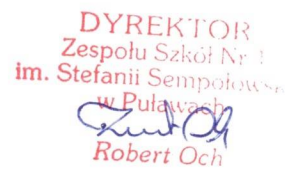 DYREKTOR
Zespołu Szkół Nr 1
im. Stefanii Sempołowsk
w Puławach
Robert Och